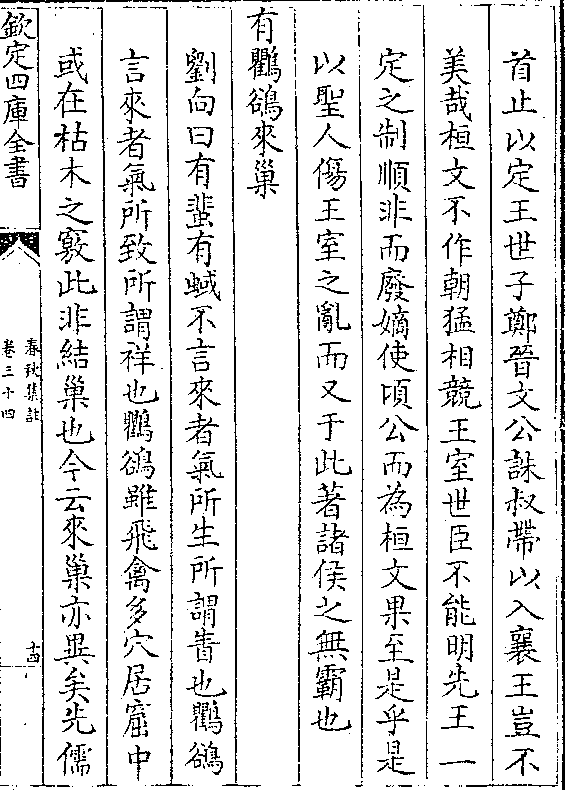 首止以定王世子鄭晉文公誅叔帶以入襄王豈不
美哉桓文不作朝猛相競王室世臣不能明先王一
定之制順非而廢嫡使頃公而為桓文果至是乎是
以聖人傷王室之亂而又于此著諸侯之無霸也
有鸜鵒來巢
劉向曰有蜚有蜮不言來者氣所生所謂眚也鸜鵒
言來者氣所致所謂祥也鸜鵒雖飛禽多穴居窟中
或在枯木之竅此非結巢也今云來巢亦異矣先儒
欽定四庫全書
春秋集註
卷三十四
十四